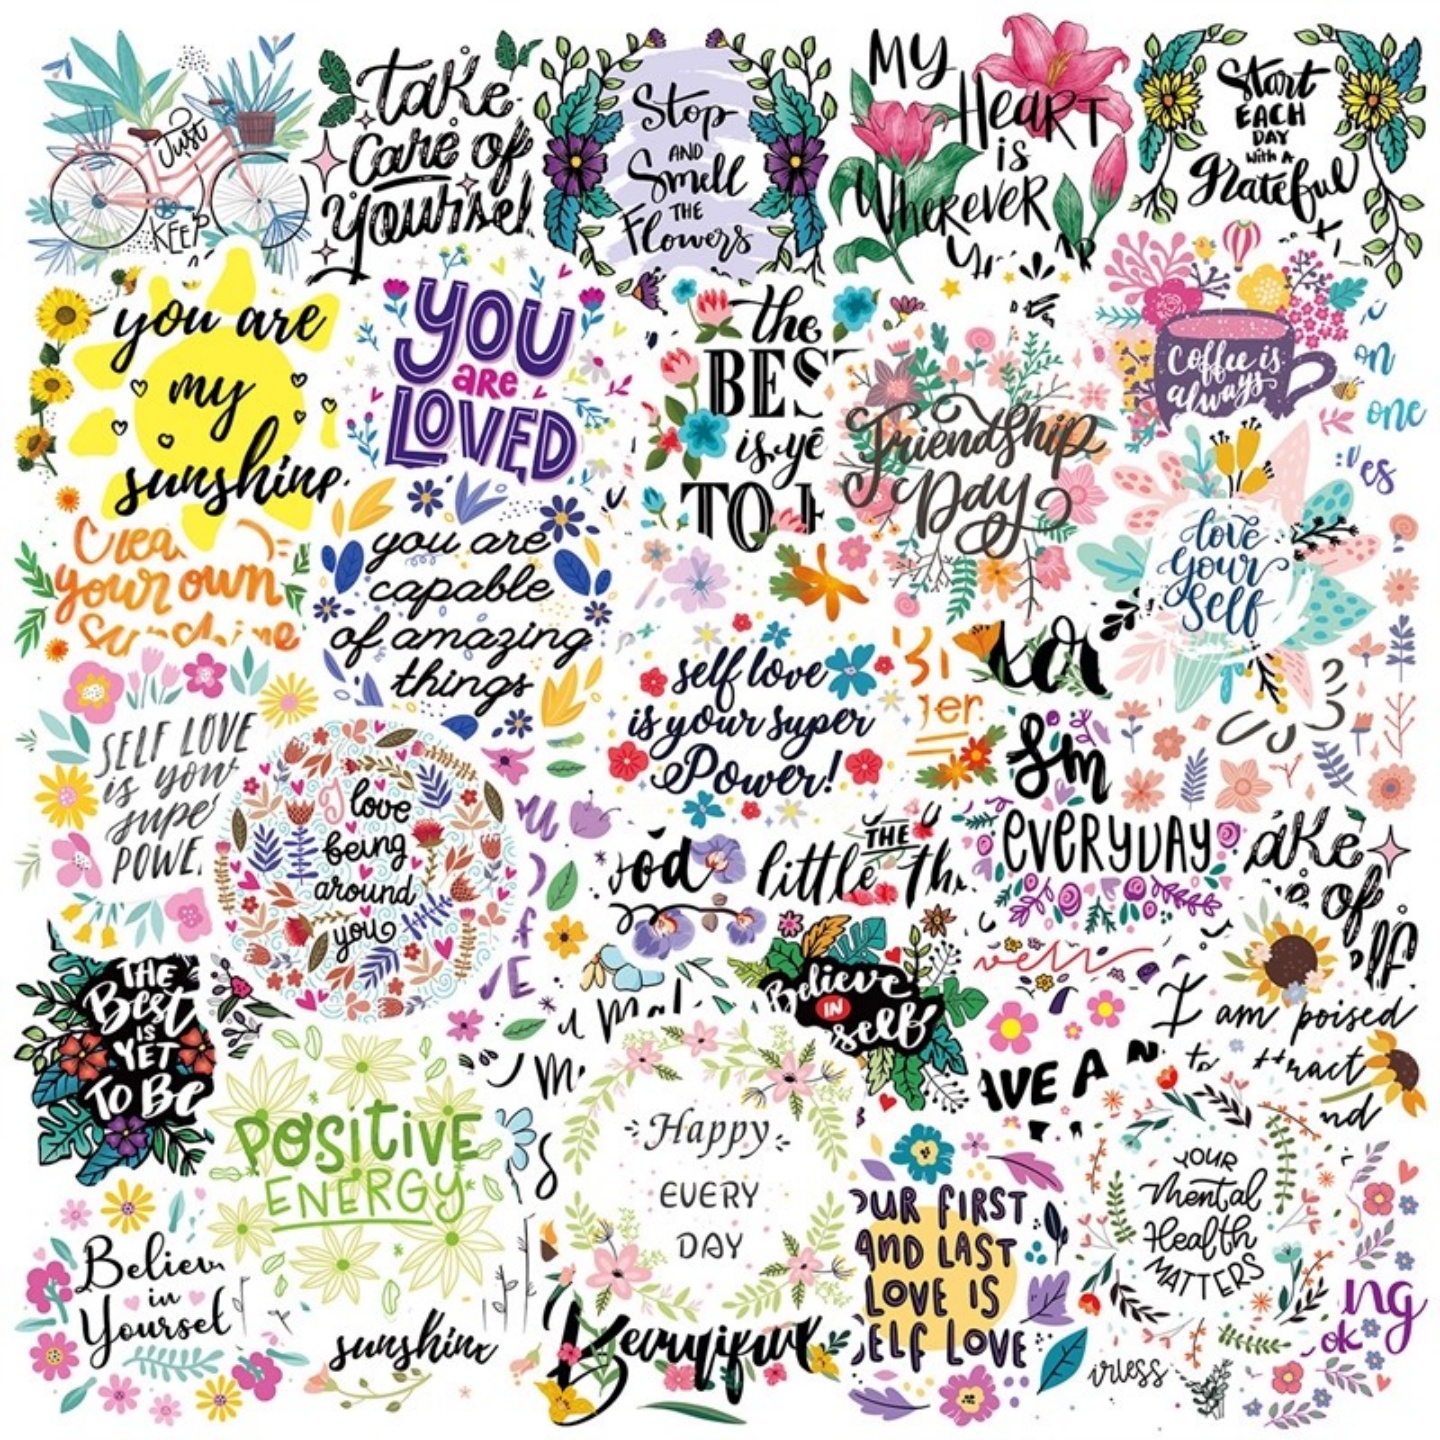 Just
KEEP
take
care of
yourself
Stop
AND
Smell
THE
Flowers
MY
HEART
is
Wherever
Start
EACH
DAY
With A
Grateful
you are
my
sunshine
YOU
ARE
LOVED
the
BEST
is ye
TO
Friendship
Day
Coffee is
always
on
one
love
your
self
Crea
your own
sunshine
you are
capable
of amazing
things
self love
is your super
Power!
SELF LOVE
is your
supe
POWE
I love
being
around
you
THE
little th
EVERYDAY
ake
of
lf
THE
Best
IS
YET
TO BE
Believe
IN
self
I am poised
to attract
nd
AVE A
POSITIVE
ENERGY
Happy
EVERY
DAY
OUR FIRST
AND LAST
LOVE IS
SELF LOVE
YOUR
Mental
Health
MATTERS
Believ
in
Yoursel
sunshin
Beautiful
irless
ng
ok